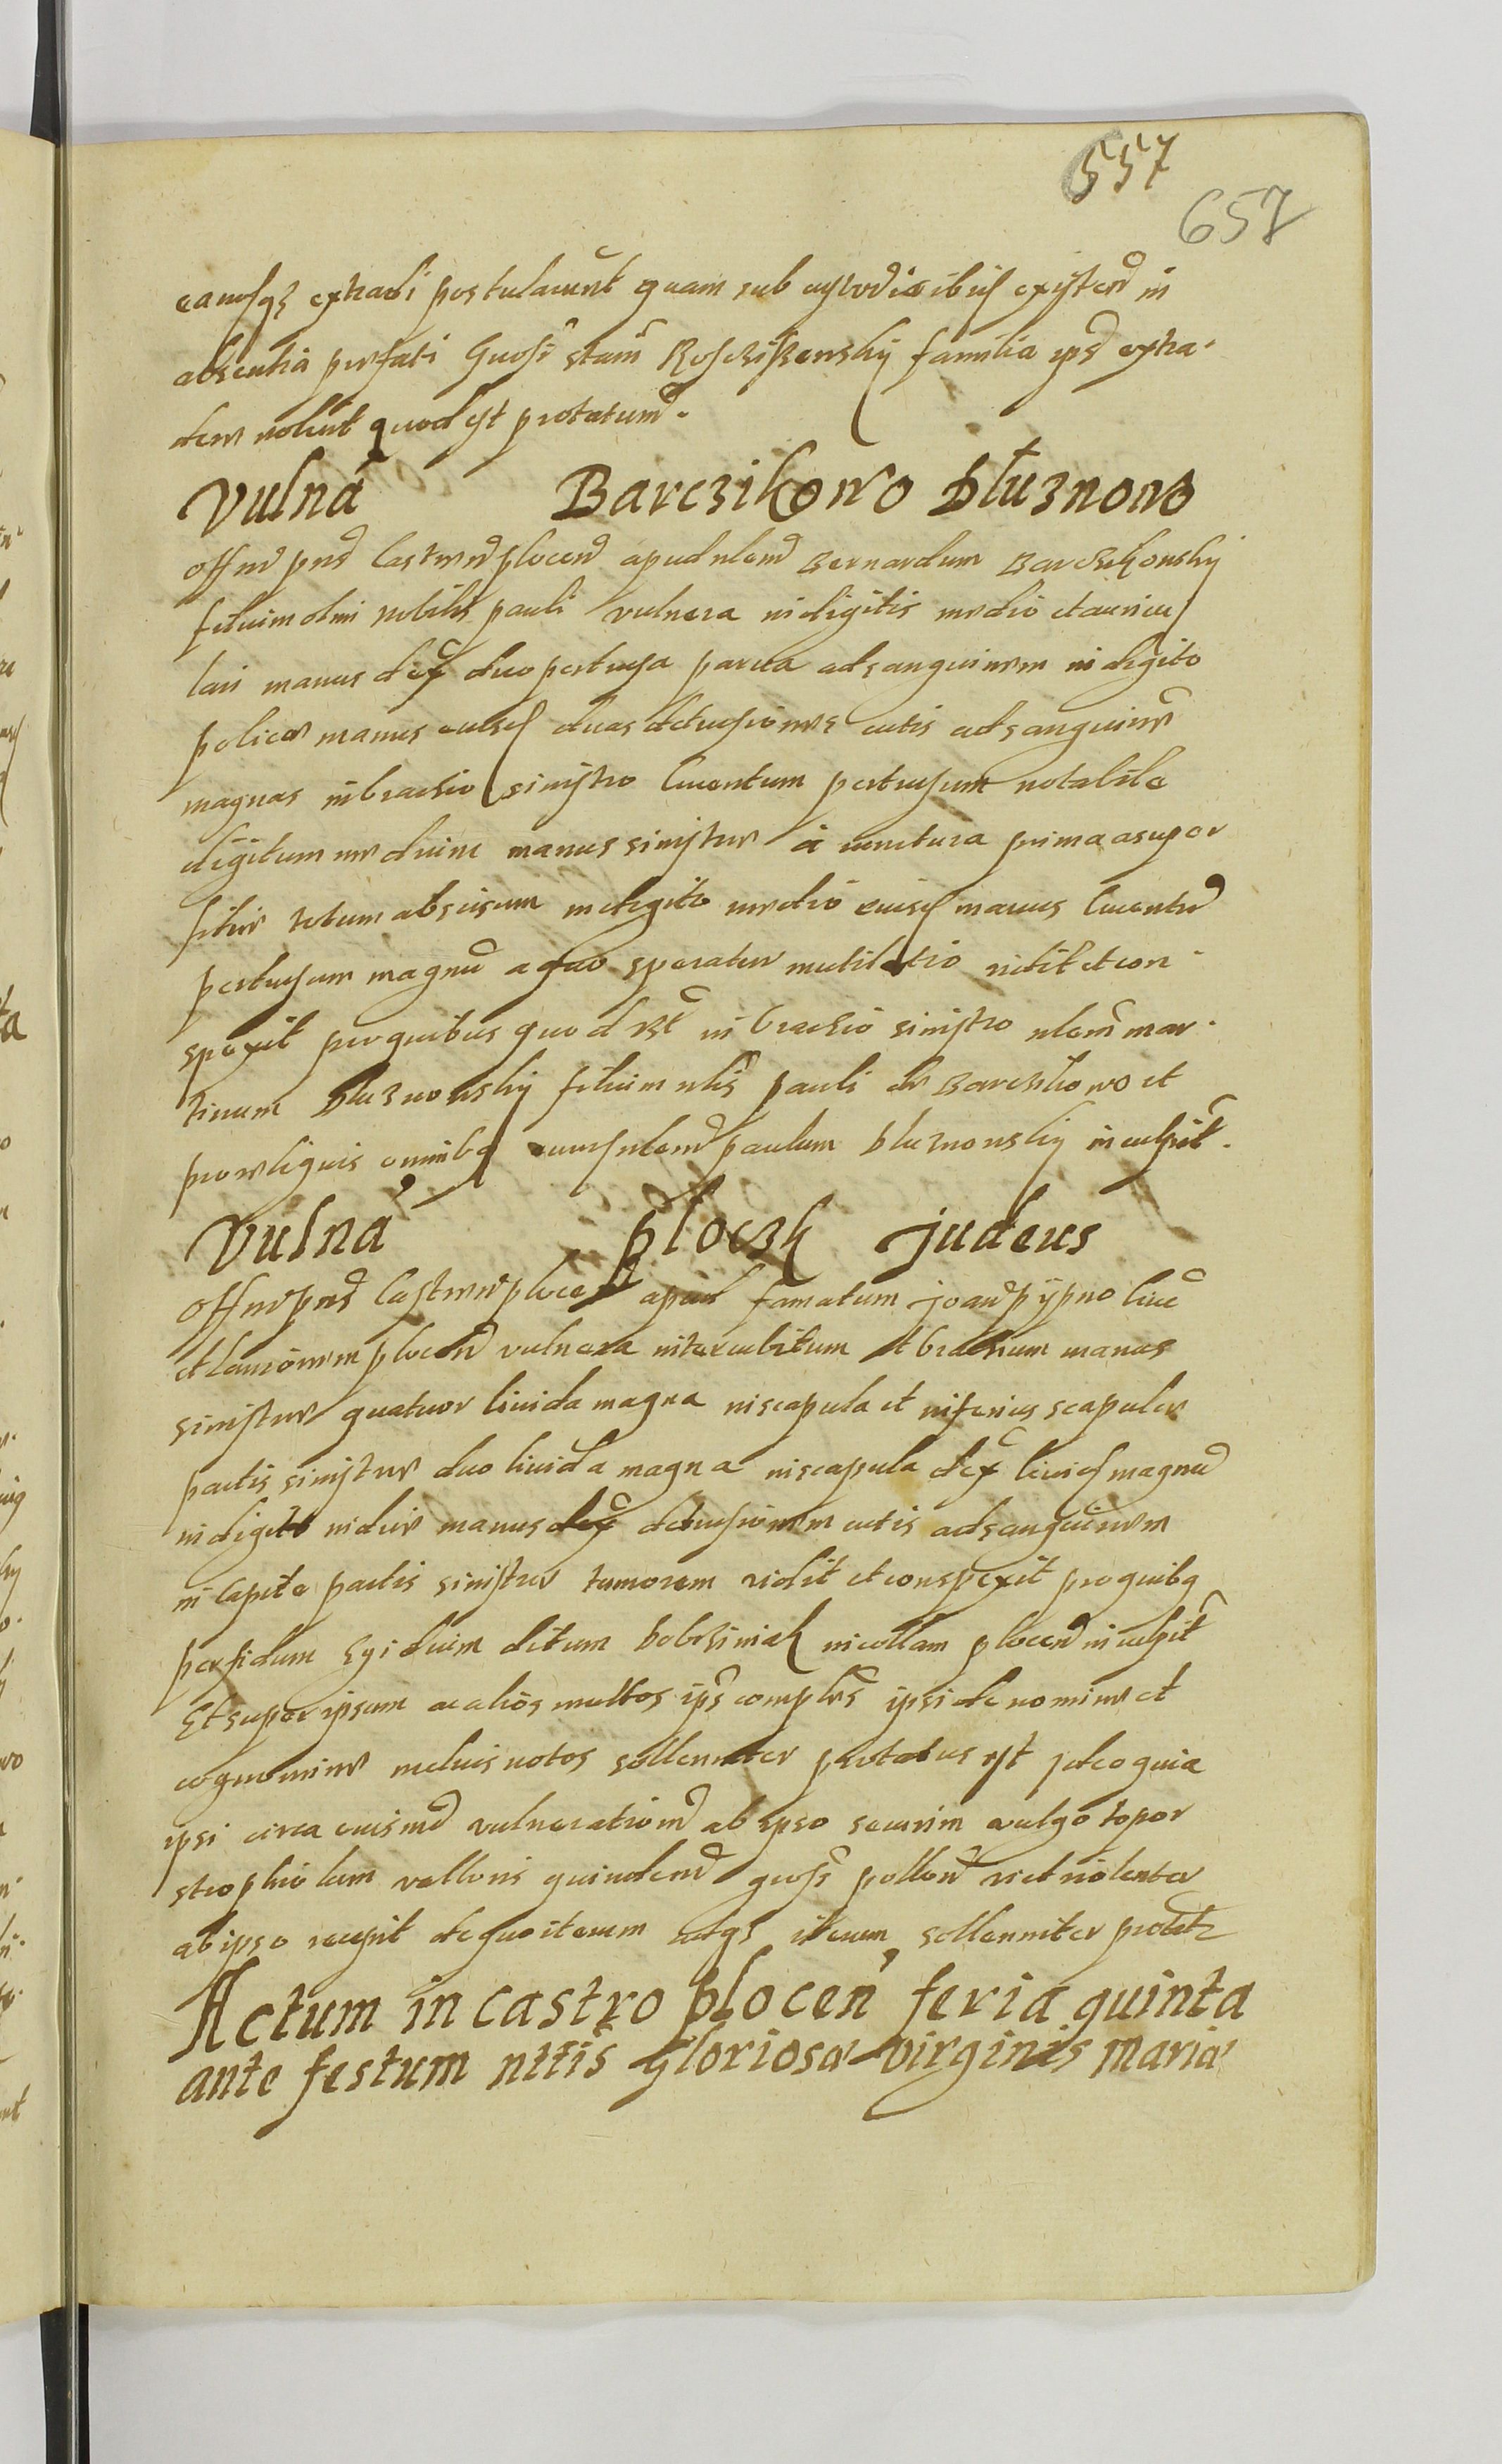 557
657
eamqz extradi postularunt quam sub custodia ibid existen in
absentia prefati Gnosi stani Rosciszewskij familia ipsis extra.
dere noluit quod est protatum.
Vulna Barczikowo bluznowo
Offm pns Castren plocen apud nlem Bernardum Barczikowskij
filium olim nobilis pauli vulnera in digitis medio et auricu
lari manus dex duo pertusa parua ad sanguinem in digito
police manus eiusd duas detrusiones cutis ad sanguine
magnas in brachio sinistro cruentum pertusum notabile
digitum medium manus sinistre a iunctura prima a super
totum abscisum in digito medio eiusd manus cruentu
pertusum magnu a quo speratur mutilatio vidit et con
spexit pro quibus quod est in brachio sinistro nlem mar
tinum bluznowskij filium nlis pauli de Barczikowo et
pro reliquis omnibq nlem paulum bluznowskij inculpit.
Vulna ploczk judeus
Offm pns Castren plocen apud famatum joan pijpno
et lanionem plocen vulnera inter cubitum et brachium manus
sinistre quatuor liuida magna in scapula et inferius scapule
partis sinistre duo liuida magna in scapula dex liuid magnu
in digito indice manus dex detrusionem cutis ad sanguinem
in capite partis sinistre tumorem vidit et conspexit pro quibq
perfidum Egidium dictum bobrziniak incolam plocen inculpit
Et super ipsum ac alios multos ips complces ipsi de nomine et
cognomine melius notos sollenniter protatus est ideo quia
ipsi circa euismd vulneration ab ipso securim vulgo topor
strophiolum valloris quindem gross pollon vi et violenter
ab ipso recepit de quo iterum atqz iterum sollenniter protat
Actum in castro plocen feria quinta
ante festum nttis gloriosa virginis maria